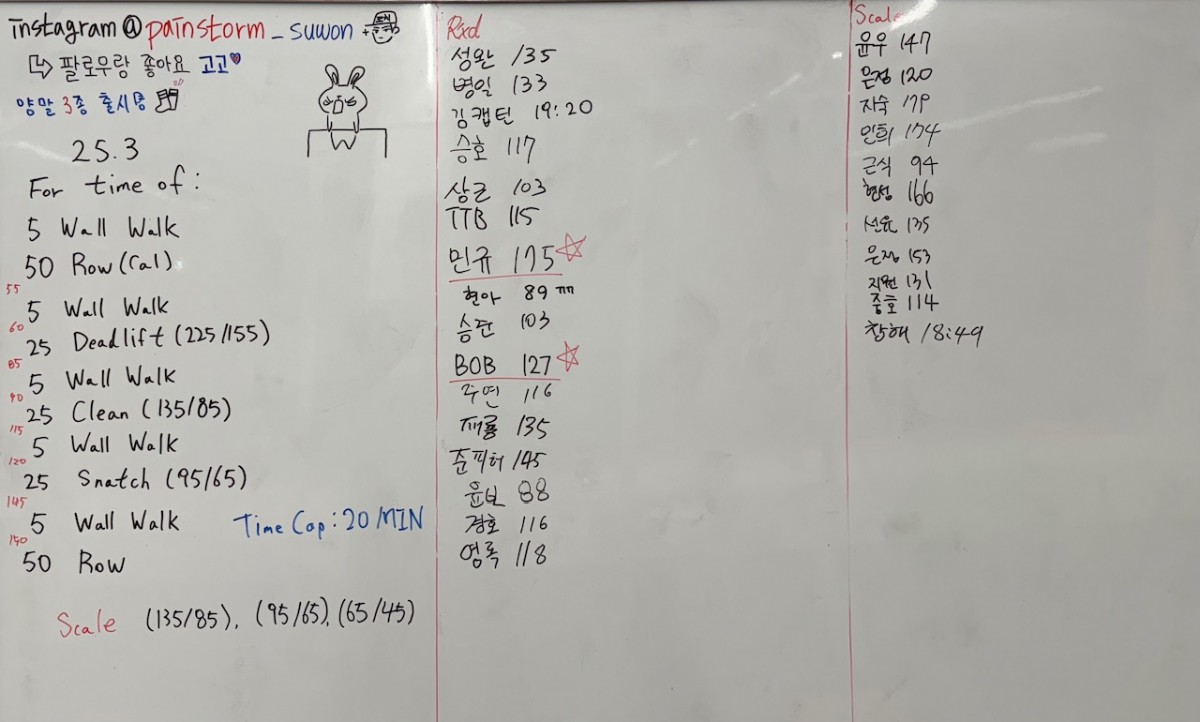 instagram @painstorm_suwon
팔로우랑 좋아요 고고
양말 3종 출시중
25.3
For time of:
5 Wall Walk
50 Row (Cal)
55
5 Wall Walk
60
25 Deadlift (225/155)
85
5 Wall Walk
90
25 Clean (135/85)
115
5 Wall Walk
120
25 Snatch (95/65)
145
5 Wall Walk
Time Cap: 20 MIN
150
50 Row
Scale (135/85), (95/65), (65/45)
Rxd
성완 135
병일 133
김캡틴 19:20
승호 117
상근 103
TTB 115
민규 175
현아 89 ㄲㄲ
승환 103
BOB 127
주연 116
재룡 135
준피터 145
윤보 88
경호 116
영록 118
Scale
윤우 147
은정 120
지숙 179
인희 174
근식 94
현성 166
선윤 135
은정 153
지원 131
중호 114
창해 18:49